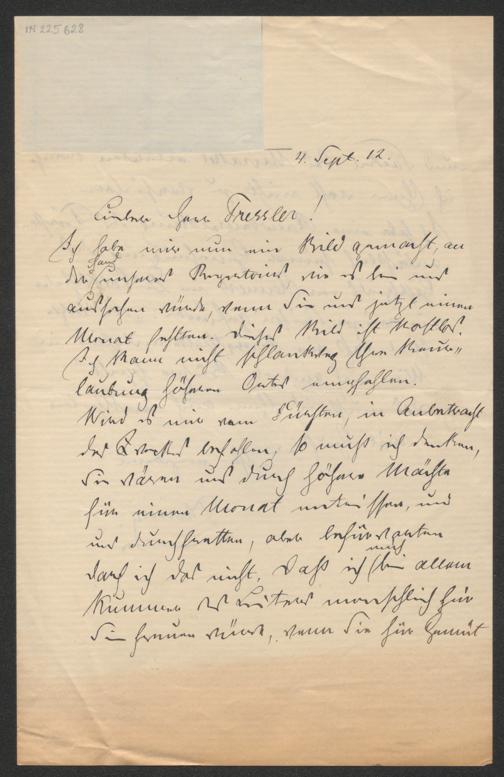 IN 225628
4. Sept. 12.
Lieber Herr Tressler!
Ich habe mir nun ein Bild gemacht, an
der Hand unseres Repertoirs wie es bei uns
aussehen würde wenn Sie uns jetzt einen
Monat fehlten. Dieses Bild ist trostlos.
Ich kann nicht schlankweg Ihre Beur-
laubung höheren Ortes empfehlen.
Wird es mir vom Fürsten, in Anbetracht
des Zweckes befohlen, so muß ich denken,
Sie wären uns durch höhere Mächte
für einen Monat entrissen, und
uns durchfretten, aber befürworten
darf ich das nicht. Daß ich mich bei allem
Kummer des Leiters menschlich für
Sie freuen würde, wenn Sie für Gemüt